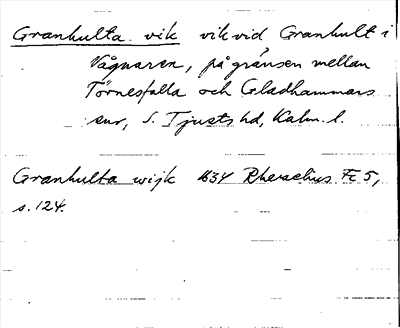 Granhulta vik vik vid Granhult i
Vågnaren, på gränsen mellan
Törnesfalla och Gladhammars
snr, S. Tjusts hd, Kalm. l.
Granhulta wijk 1634 Rhezelius Fc 5,
s. 124.